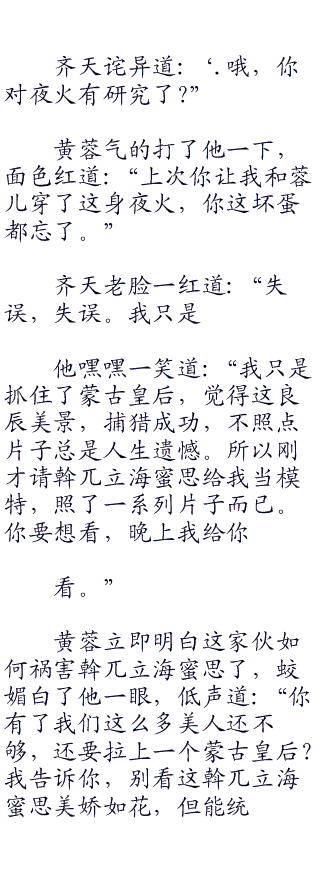 齐天诧异道：‘.哦，你
对夜火有研究了？”
黄蓉气的打了他一下，
面色红道：“上次你让我和蓉
儿穿了这身夜火，你这坏蛋
都忘了。”
齐天老脸一红道：“失
误，失误。我只是
他嘿嘿一笑道：“我只是
抓住了蒙古皇后，觉得这良
辰美景，捕猎成功，不照点
片子总是人生遗憾。所以刚
才请斡兀立海蜜思给我当模
特，照了一系列片子而已。
你要想看，晚上我给你
看。”
黄蓉立即明白这家伙如
何祸害斡兀立海蜜思了，蛟
媚白了他一眼，低声道：“你
有了我们这么多美人还不
够，还要拉上一个蒙古皇后？
我告诉你，别看这斡兀立海
蜜思美娇如花，但能统